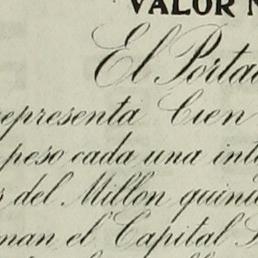 VALOR N
El Porta
representa Cien
peso cada una int
s del Millon quini
man el Capital S